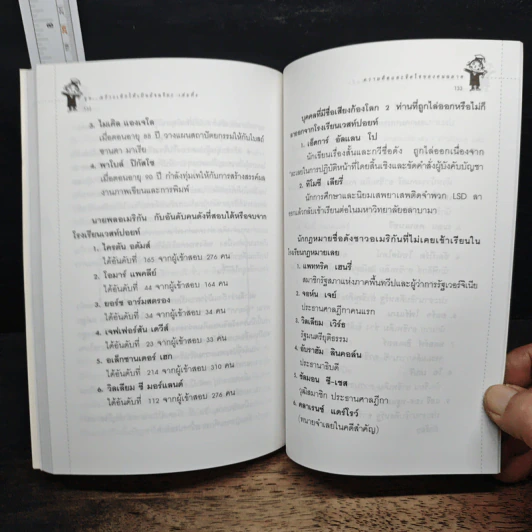 ๓. ไมเคิล แองเจโล
เมื่อตอนอายุ 88 ปี วางแผนสถาปัตยกรรมให้กับโบสถ์
ซานตา มาเรีย
๔. พาโบล์ ปิกัสโซ
เมื่อตอนอายุ 90 ปี กำลังทุ่มเทให้กับการสร้างสรรค์ผล
งานภาพเขียนและการพิมพ์
นายพลอเมริกัน กับอันดับคนดังที่สอบได้หรือจบจาก
โรงเรียนเวสท์ปอยท์
1. ไครตัน อดัมส์
ได้อันดับที่ 165 จากผู้เข้าสอบ 276 คน
2. โอมาร์ แพคลีย์
ได้อันดับที่ 44 จากผู้เข้าสอบ 164 คน
3. ยอร์ช อาร์มสตรอง
ได้อันดับที่ 34 จากผู้เข้าสอบ 34 คน
4. เจฟเฟอร์สัน เดวีส์
ได้อันดับที่ 23 จากผู้เข้าสอบ 33 คน
5. อเล็กซานเดอร์ เฮก
ได้อันดับที่ 214 จากผู้เข้าสอบ 310 คน
6. วิลเลียม ซี มอร์แลนด์
ได้อันดับที่ 112 จากผู้เข้าสอบ 276 คน
บุคคลที่มีชื่อเสียงก้องโลก 2 ท่านที่ถูกไล่ออกหรือไม่ก็
ลาออกจากโรงเรียนเวสท์ปอยท์
1. เอ็ดการ์ อัลแลน โป
นักเขียนเรื่องสั้นและกวีชื่อดัง ถูกไล่ออกเนื่องจาก
ในการปฏิบัติหน้าที่โดยสิ้นเชิงและขัดคำสั่งผู้บังคับบัญชา
2. ทิโมธี เลียรี่
นักการศึกษาและนิยมเสพยาเสพติดจำพวก LSD ลา
ออกแล้วกลับเข้าเรียนต่อในมหาวิทยาลัยอลาบามา
นักกฎหมายชื่อดังชาวอเมริกันที่ไม่เคยเข้าเรียนใน
โรงเรียนกฎหมายเลย
1. แพททริค เฮนรี่
สมาชิกรัฐสภาแห่งภาคพื้นทวีปและผู้ว่าการรัฐเวอร์จิเนีย
2. จอห์น เจย์
ประธานศาลฎีกาคนแรก
3. วิลเลียม เวิร์ธ
รัฐมนตรียุติธรรม
4. อับราฮัม ลินคอล์น
ประธานาธิบดี
5. ซัลมอน ซี-เชส
วุฒิสมาชิก ประธานศาลฎีกา
6. คลาเรนซ์ แดร์โรว์
(ทนายจำเลยในคดีสำคัญ)